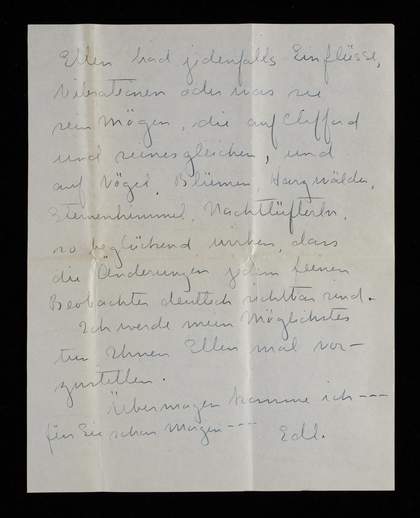 Ellen hat jedenfalls Einflüsse,
Vibrationen oder was sie
sein mögen, die auf Clifford
und seinesgleichen, und
auf Vögel, Blumen, Hargwälder,
Sternenhimmel, Nachtlüfterln,
so beglückend wirken, dass
die Änderungen jedem feinen
Beobachter deutlich sichtbar sind.
Ich werde mein Möglichstes
tun Ihnen Ellen mal vor-
zustellen.
Übermorgen komme ich ---
für Sie schon morgen ---
Edl.